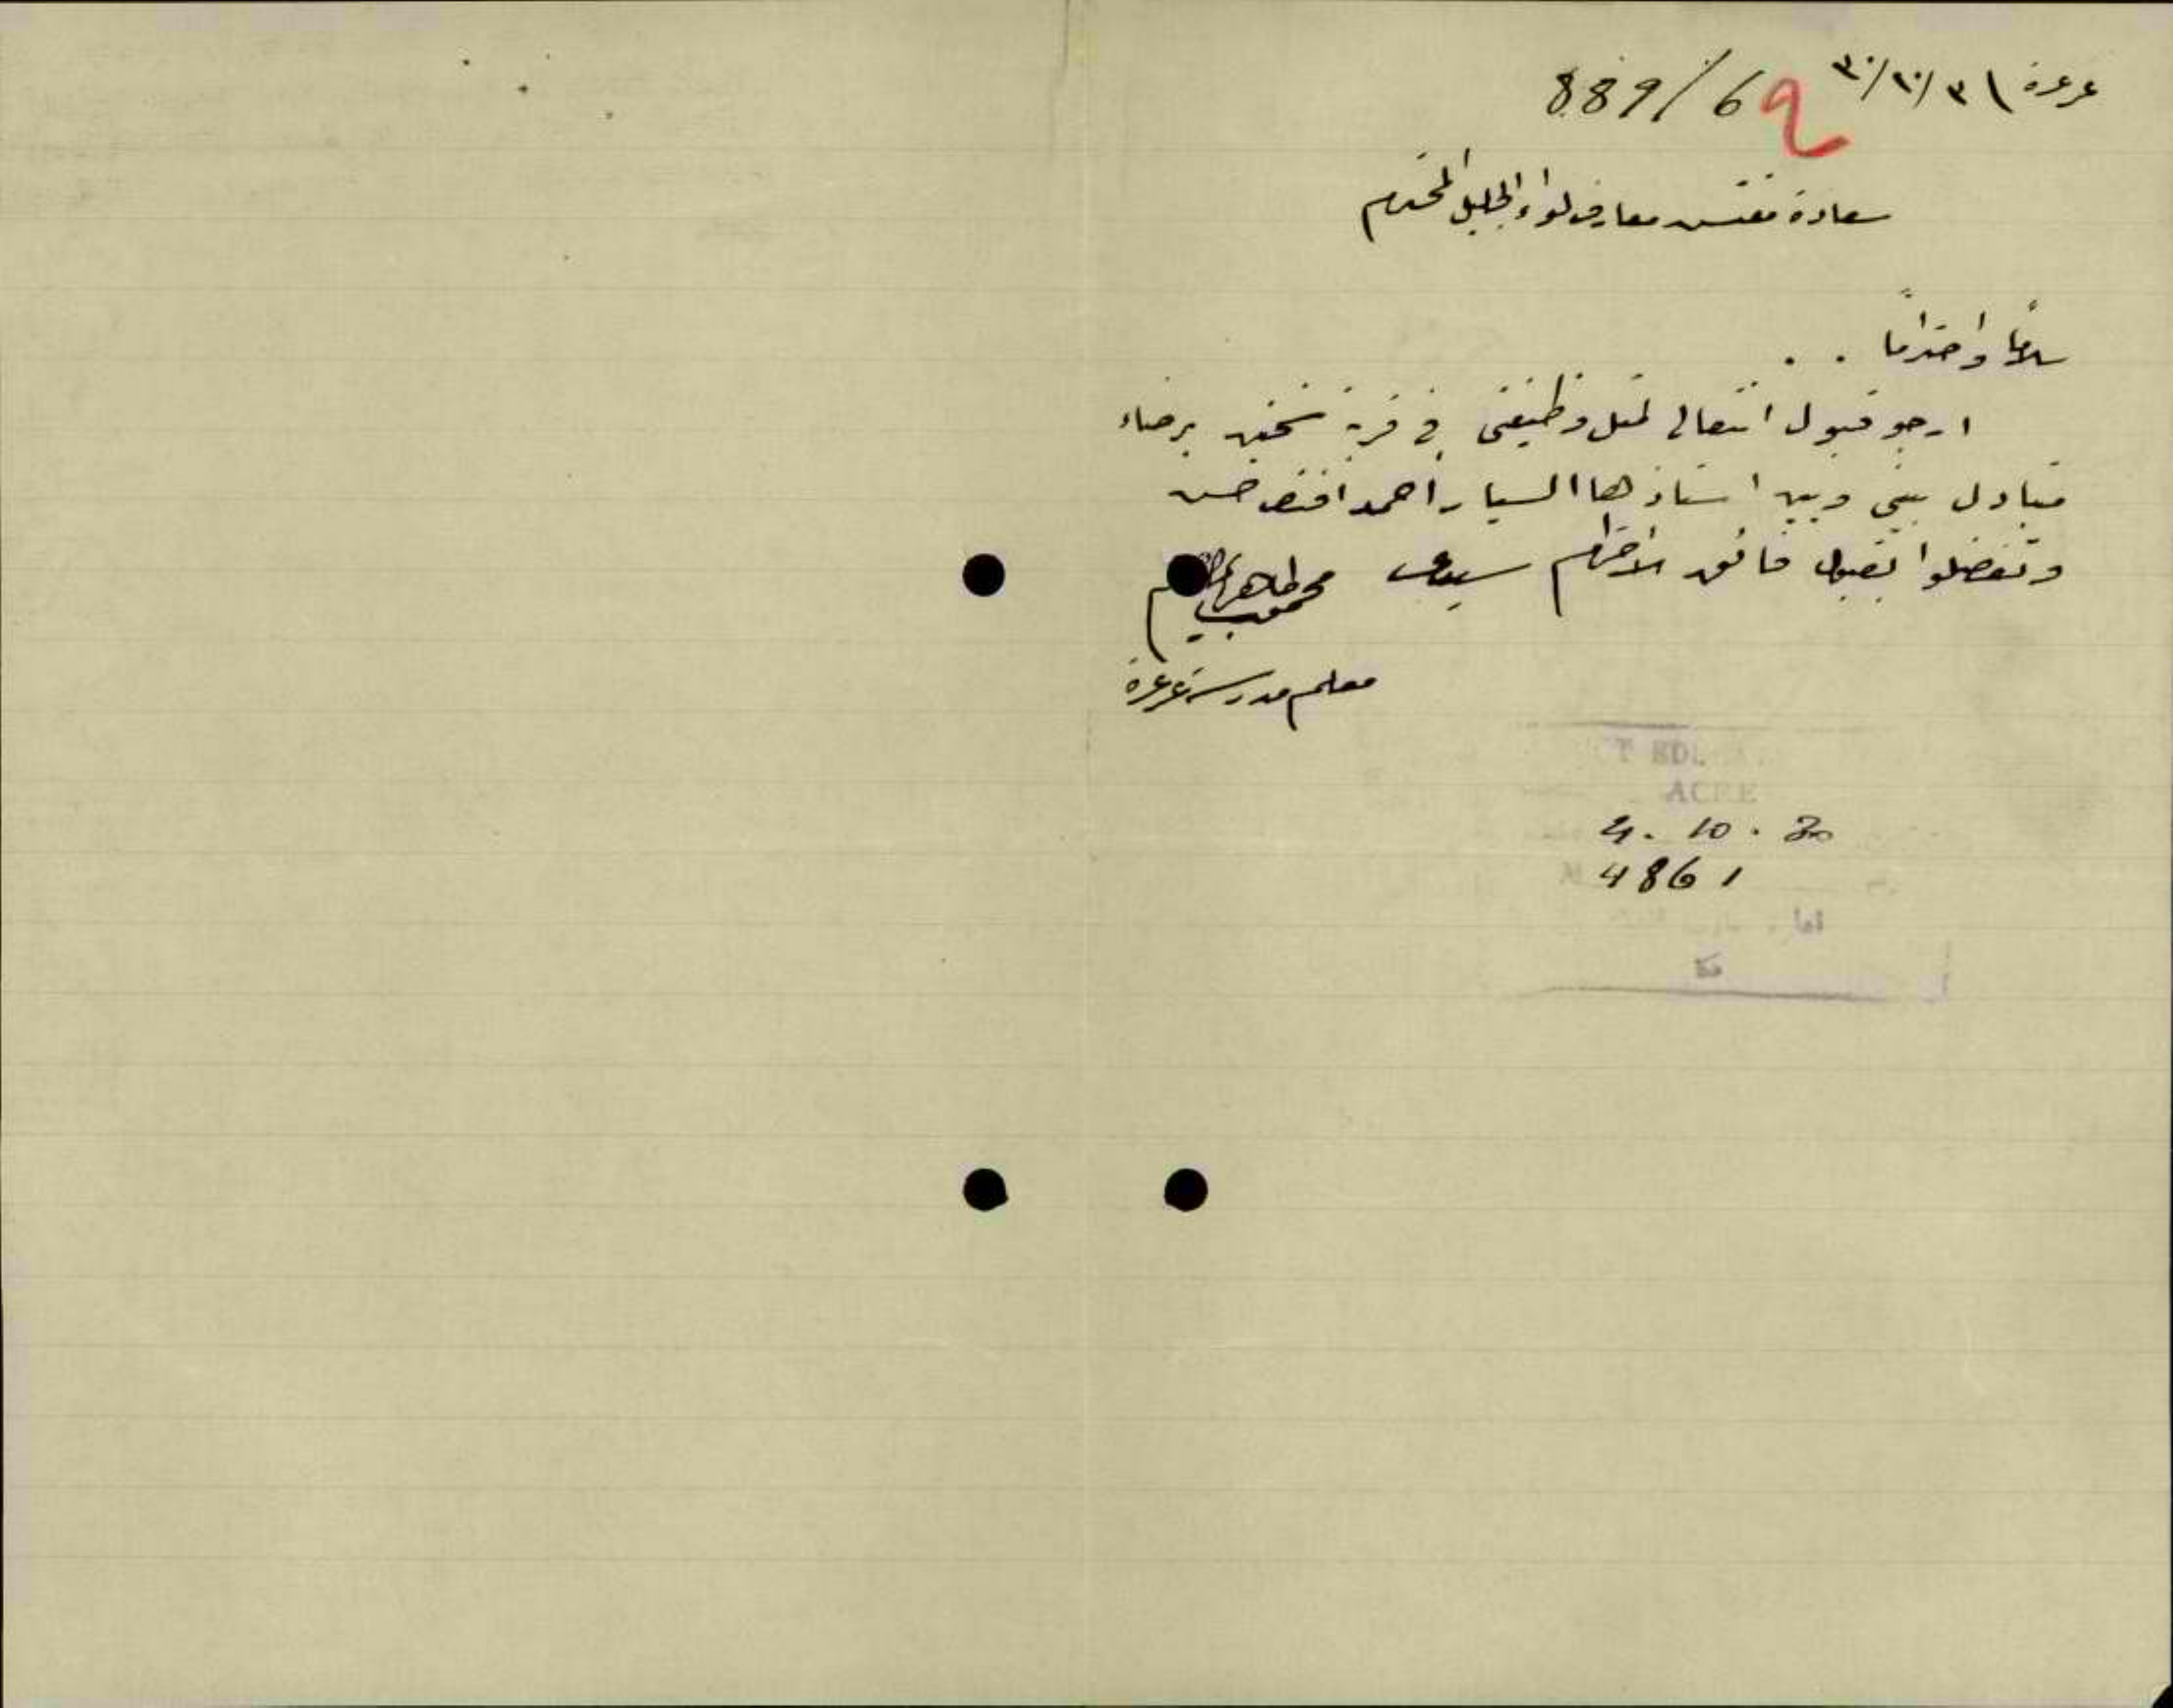 عرعرة \ ٣/١٠/٣٠
889/69
سعادة مفتش معارف لواء الجليل المحترم
سلاماً واحتراماً . .
ارجو قبول انتقالي لمثل وظيفتي في قرية سخنين برضاء
متبادل بيني وبين استاذها السيار احمد افندي حسن
وتفضلوا بقبول فائق الاحترام سيدي
محمد طاهر
معلم مدرسة عرعرة
ACRE
4. 10. 30
4861
عكا